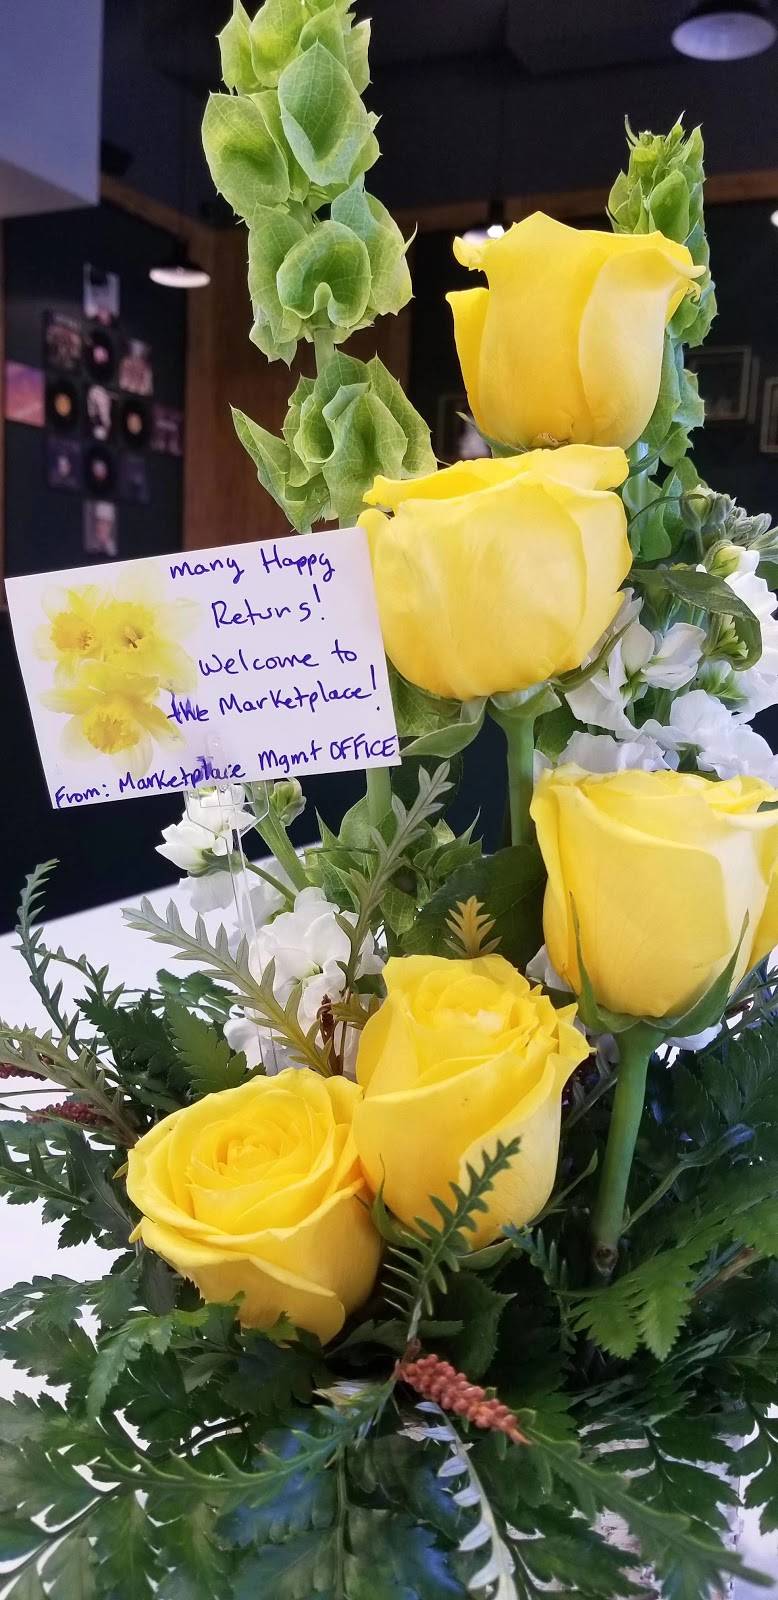 Many Happy
Returns!
Welcome to
the Marketplace!
From: Marketplace Mgmt OFFICE